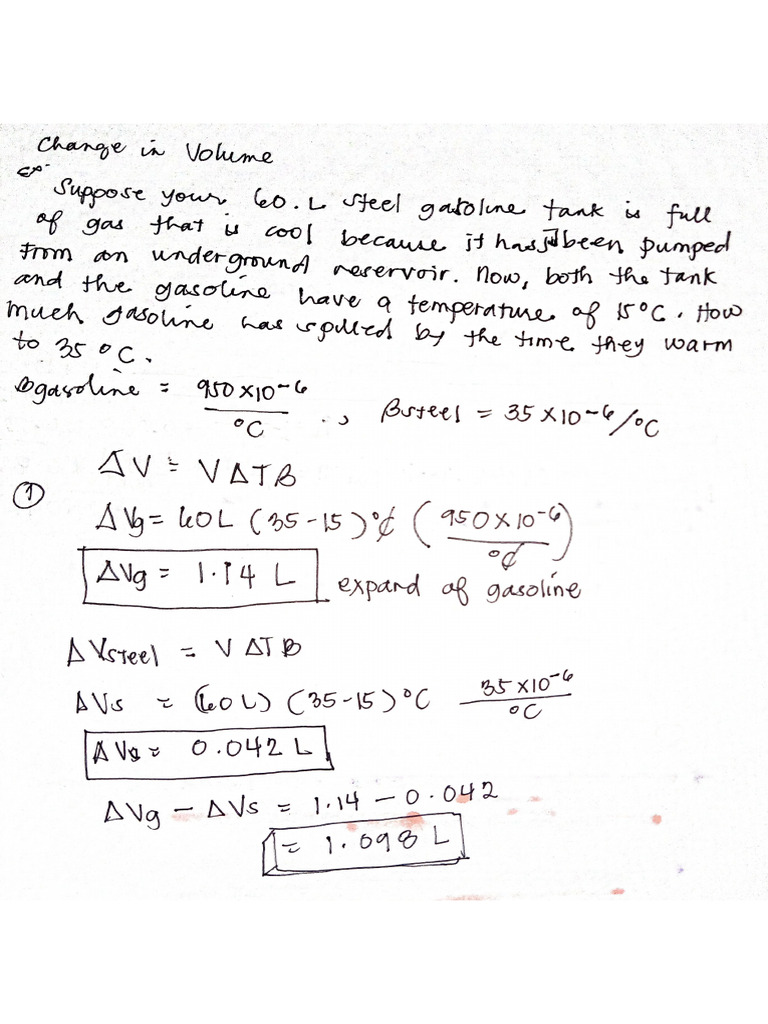 Change in Volume
Ex.
Suppose your 60.L steel gasoline tank is full
of gas that is cool because it has been pumped
from an underground reservoir. Now, both the tank
and the gasoline have a temperature of 15°C. How
much gasoline has spilled by the time they warm
to 35 °C.
βgasoline = 950×10-6 / °C , βsteel = 35 ×10-6/°C
ΔV = VΔTβ
① ΔVg = 60L (35-15)°C (950×10-6 / °C)
ΔVg = 1.14 L expand of gasoline
ΔVsteel = VΔTβ
ΔVs = (60L) (35-15)°C 35×10-6 / °C
ΔVs = 0.042 L
ΔVg - ΔVs = 1.14 - 0.042
= 1.098 L